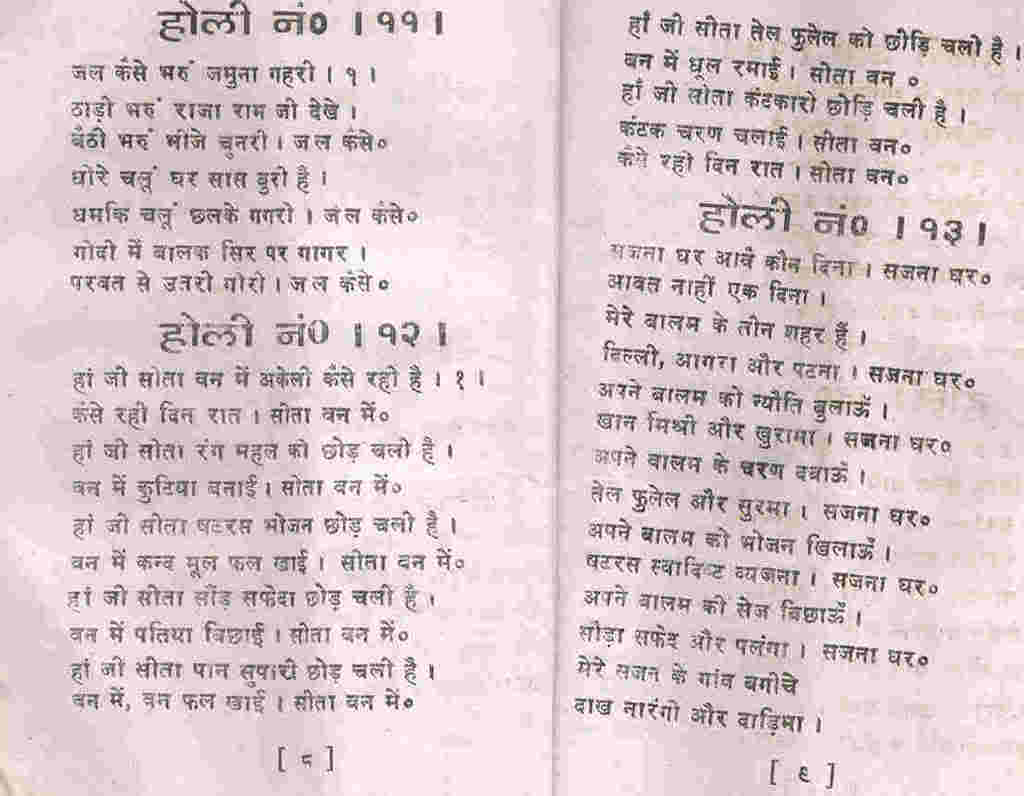 होली नं० । ११ ।
जल कैसे भरुं जमुना गहरी । १ ।
ठाड़ी भरुं राजा राम जी देखे ।
बैठी भरुं भीजे चुनरी । जल कैसे०
धोरे चलूं घर सास बुरी है ।
धमकि चलूं छलके गगरी । जल कैसे०
गोदी में बालक सिर पर गागर ।
परवत से उतरी गोरी । जल कैसे०
होली नं० । १२ ।
हां जी सीता वन में अकेली कैसे रही है । १ ।
कैसे रही दिन रात । सीता वन में०
हां जी सीता रंग महल को छोड़ चली है ।
वन में कुटिया बनाई । सीता वन में०
हां जी सीता षटरस भोजन छोड़ चली है ।
वन में कन्द मूल फल खाई । सीता वन में०
हां जी सीता सौंड़ सफेदा छोड़ चली है ।
वन में पतिया बिछाई । सीता वन में०
हां जी सीता पान सुपारी छोड़ चली है ।
वन में, वन फल खाई । सीता वन में०
[ ८ ]
हां जी सीता तेल फुलेल को छोड़ि चली है ।
वन में धूल रमाई । सीता वन ०
हां जी सीता कंटकारो छोड़ि चली है ।
कंटक चरण चलाई । सीता वन०
कैसे रही दिन रात । सीता वन०
होली नं० । १३ ।
सजना घर आवे कौन दिना । सजना घर०
आवत नाहीं एक दिना ।
मेरे बालम के तीन शहर हैं ।
दिल्ली, आगरा और पटना । सजना घर०
अपने बालम को न्यौति बुलाऊँ ।
खान मिश्री और खुरामा । सजना घर०
अपने बालम के चरण दवाऊँ ।
तेल फुलेल और सुरमा । सजना घर०
अपने बालम को भोजन खिलाऊँ ।
षटरस स्वादिष्ट व्यजना । सजना घर०
अपने बालम की सेज बिछाऊँ ।
सौड़ा सफेद और पलंगा । सजना घर०
मेरे सजन के गांव बगीचे
दाख नारंगी और दाड़िमा ।
[ ६ ]